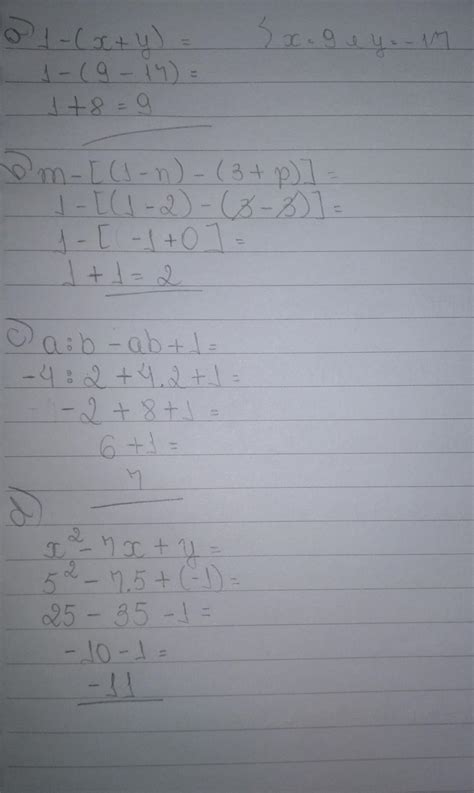 a) 1-(x+y) = } x=9 e y=-17
1-(9-17)=
1+8=9
b) m-[(1-n)-(3+p)]=
1-[(1-2)-(3-3)]=
1-[-1+0]=
1+1=2
c) a:b-ab+1=
-4:2+4.2+1=
-2+8+1=
6+1=
7
d)
x²-7x+y=
5²-7.5+(-1)=
25-35-1=
-10-1=
-11